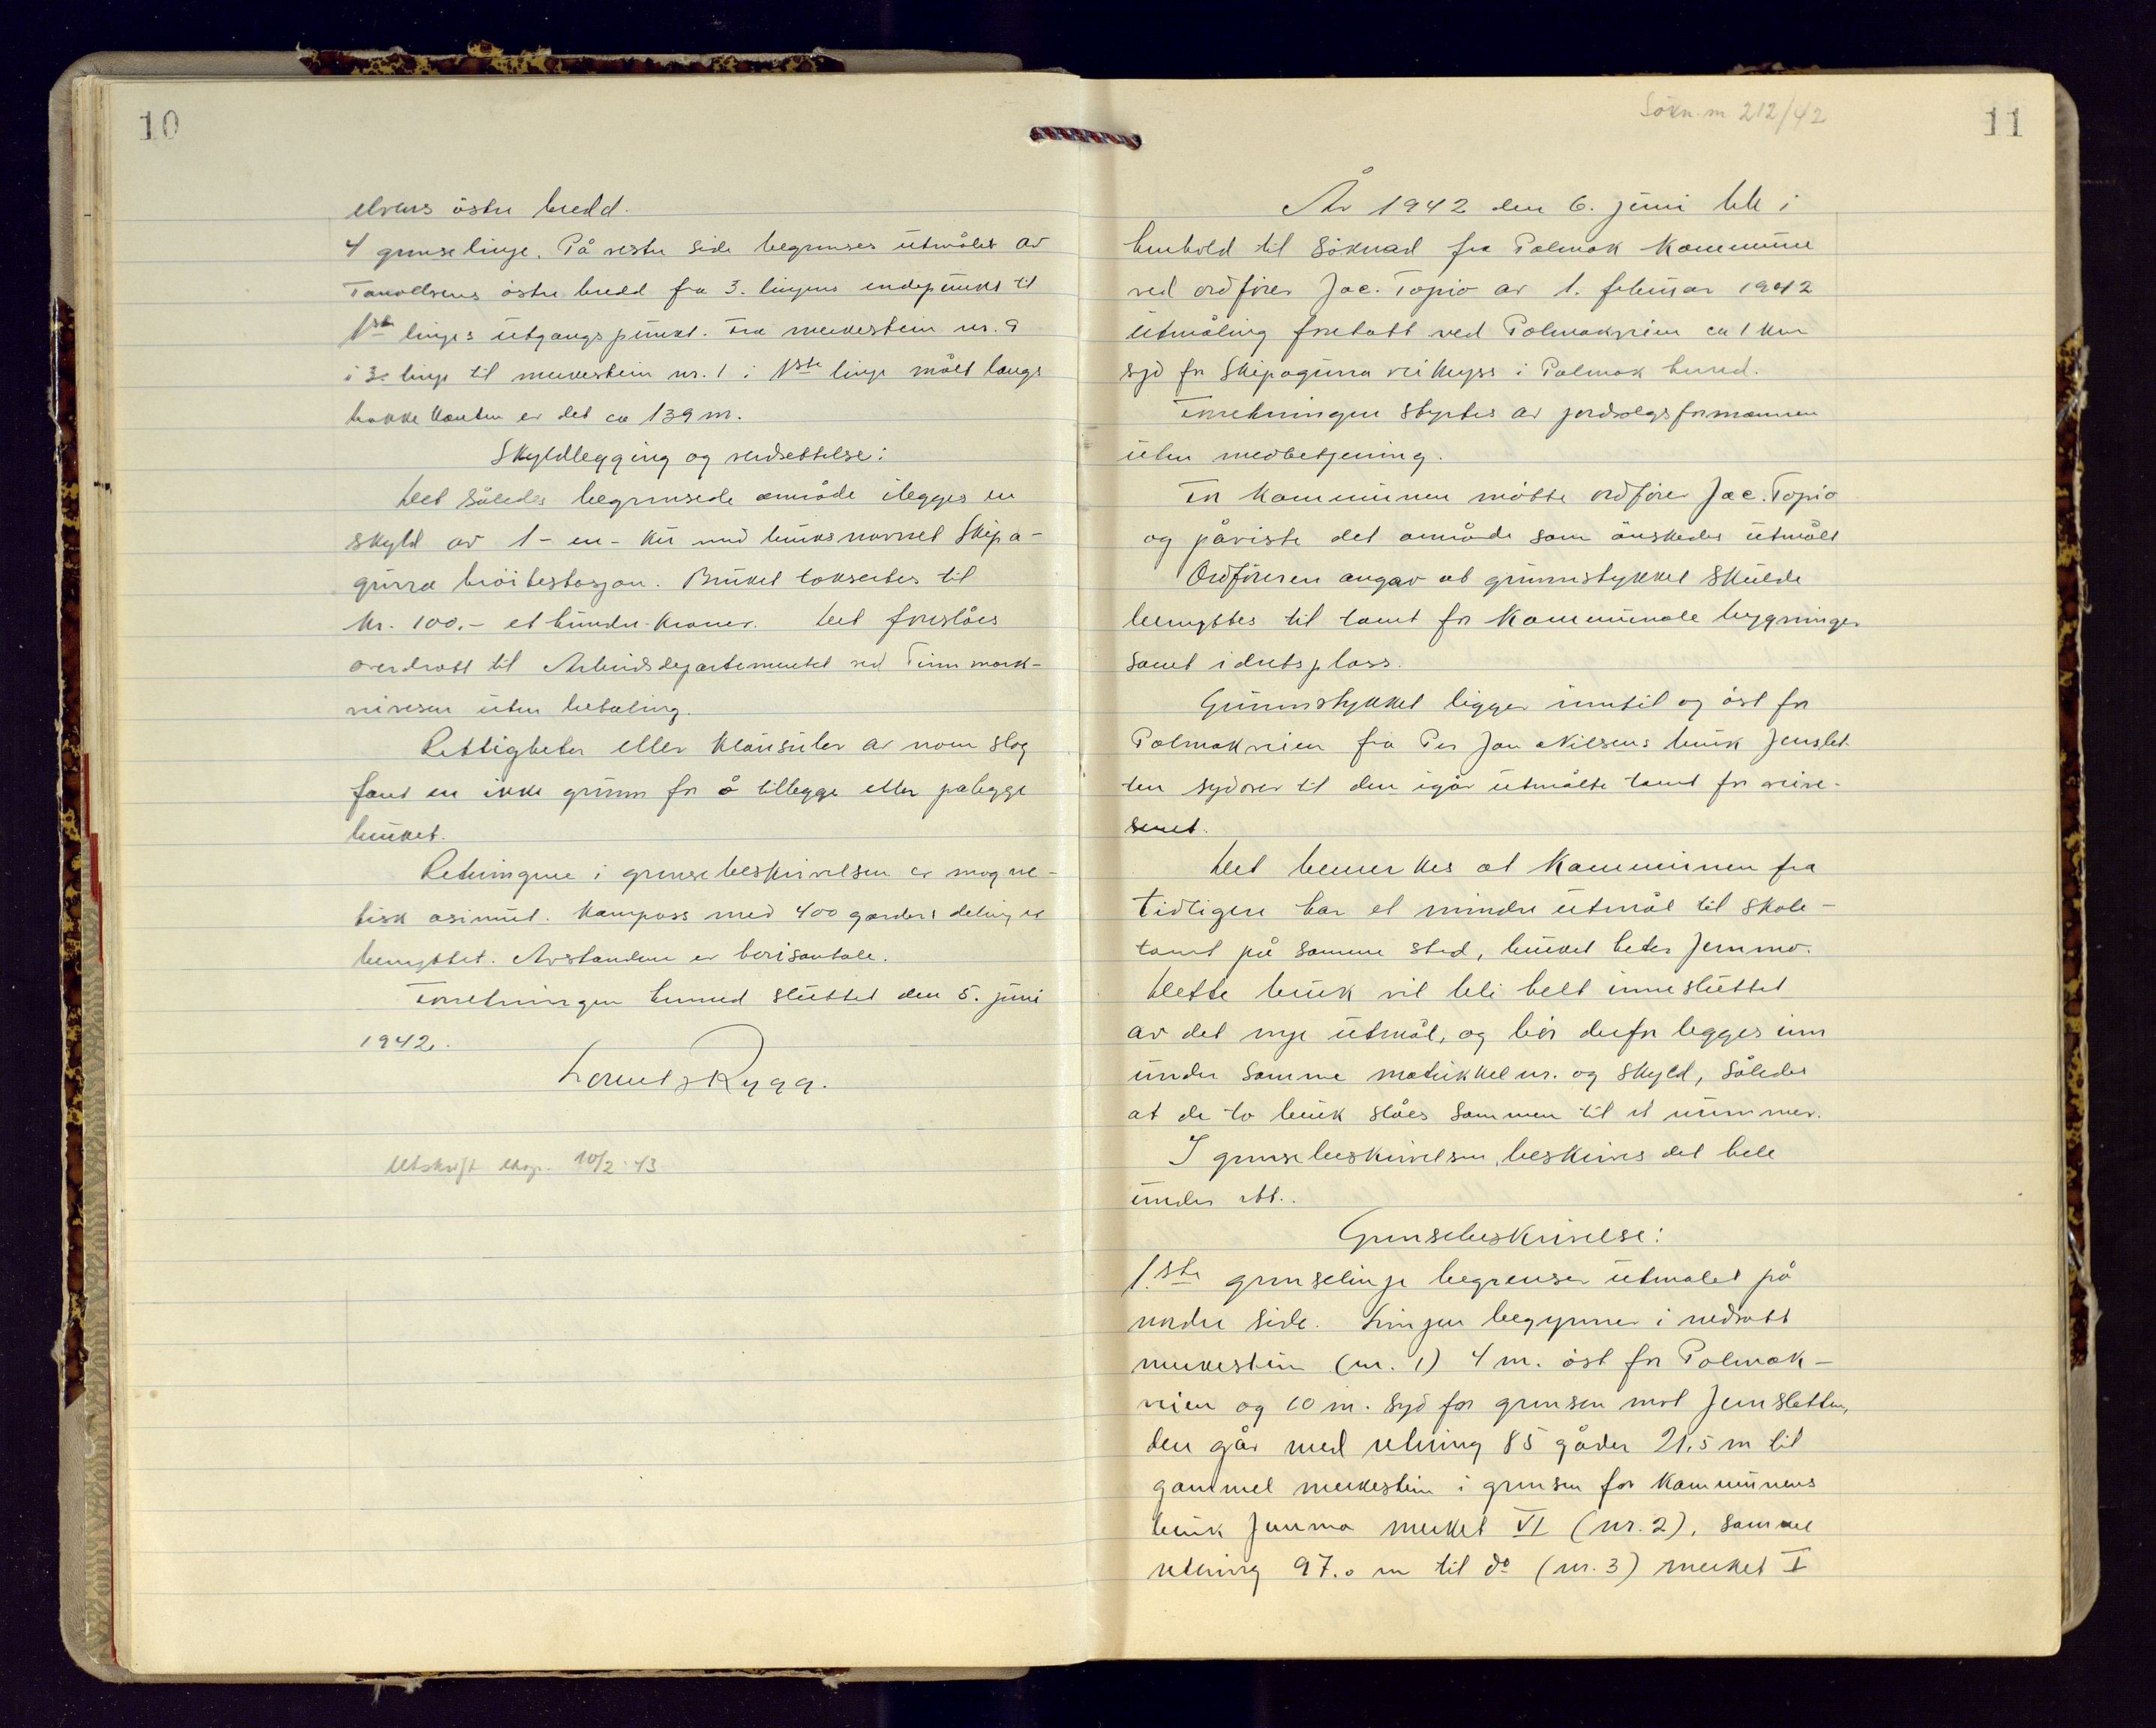 10
elvens östre bredd.
4 grenselinje. På vestre side begrenses utmålet av
Tanaelvens östre bredd fra 3. linjens endepunkt til
1ste linjes utgangspunkt. Fra merkestein nr. 9
i 3. linje til merkestein nr. 1 i 1ste linje målt langs
bakkekanten er det ca 139 m.
Skyldlegging og verdsettelse:
Det således begrensede område ilegges en
skyld av 1 - en - öre med bruksnavnet Skipa-
gurra bröitestasjon. Bruket takseertes til
kr. 100.- et hundre kroner. Det foreslåes
overdratt til Arbeidsdepartementet ved Finnmark-
veivesen uten betaling.
Rettigheter eller klausuler av noen slag
fant en ikke grunn for å tillegge eller pålegge
bruket.
Retningene i grensebeskrivelsen er magne-
tisk asimut. Kompass med 400 graders deling er
benyttet. Avstandene er horisontale.
Forretningen hermed sluttet den 5. juni
1942.
Rygg.
Utskrift eksp. 10/2-43
Sökn. nr 212/42
11
År 1942 den 6. juni ble i
henhold til söknad fra Polmak kommune
ved ordförer Jac. Topio av 1. februar 1942
utmåling foretatt ved Polmakveien ca 1 km
syd for Skipagurra veikryss i Polmak herred.
Forretningen styrtes av jordsalgsformannen
uten medbetjening.
For kommunen mötte ordförer Jac. Topio
og påviste det område som önskedes utmålt
Ordföreren angav at grunnstykket skulde
benyttes til tomt for kommunale bygninger
samt idretsplass.
Grunnstykket ligger inntil og öst for
Polmakveien fra Per Jon Nilsens bruk Jenslet-
ten sydover til den igår utmålte tomt for veive-
senet.
Det bemerkes at kommunen fra
tidligere har et mindre utmål til skole-
tomt på samme sted, bruket heter Jernmo.
Dette bruk vil bli helt innesluttet
av det nye utmål, og bör derfor legges inn
under samme matrikkelnr. og skyld, således
at de to bruk slåes sammen til et nummer.
I grensebeskrivelsen, beskrives det hele
under ett.
Grensebeskrivelse:
1.ste grenselinje begrenser utmålet på
nordre side. Linjen begynner i nedsatt
merkestein (nr. 1) 4 m. öst for Polmak-
veien og 10 m. syd for grensen mot Jernsletten,
den går med retning 85 gåder 21,5 m til
gammel merkestein i grensen for kommunens
bruk Jernmo merket VI (nr. 2), samme
retning 97.0 m til do (nr. 3) merket I